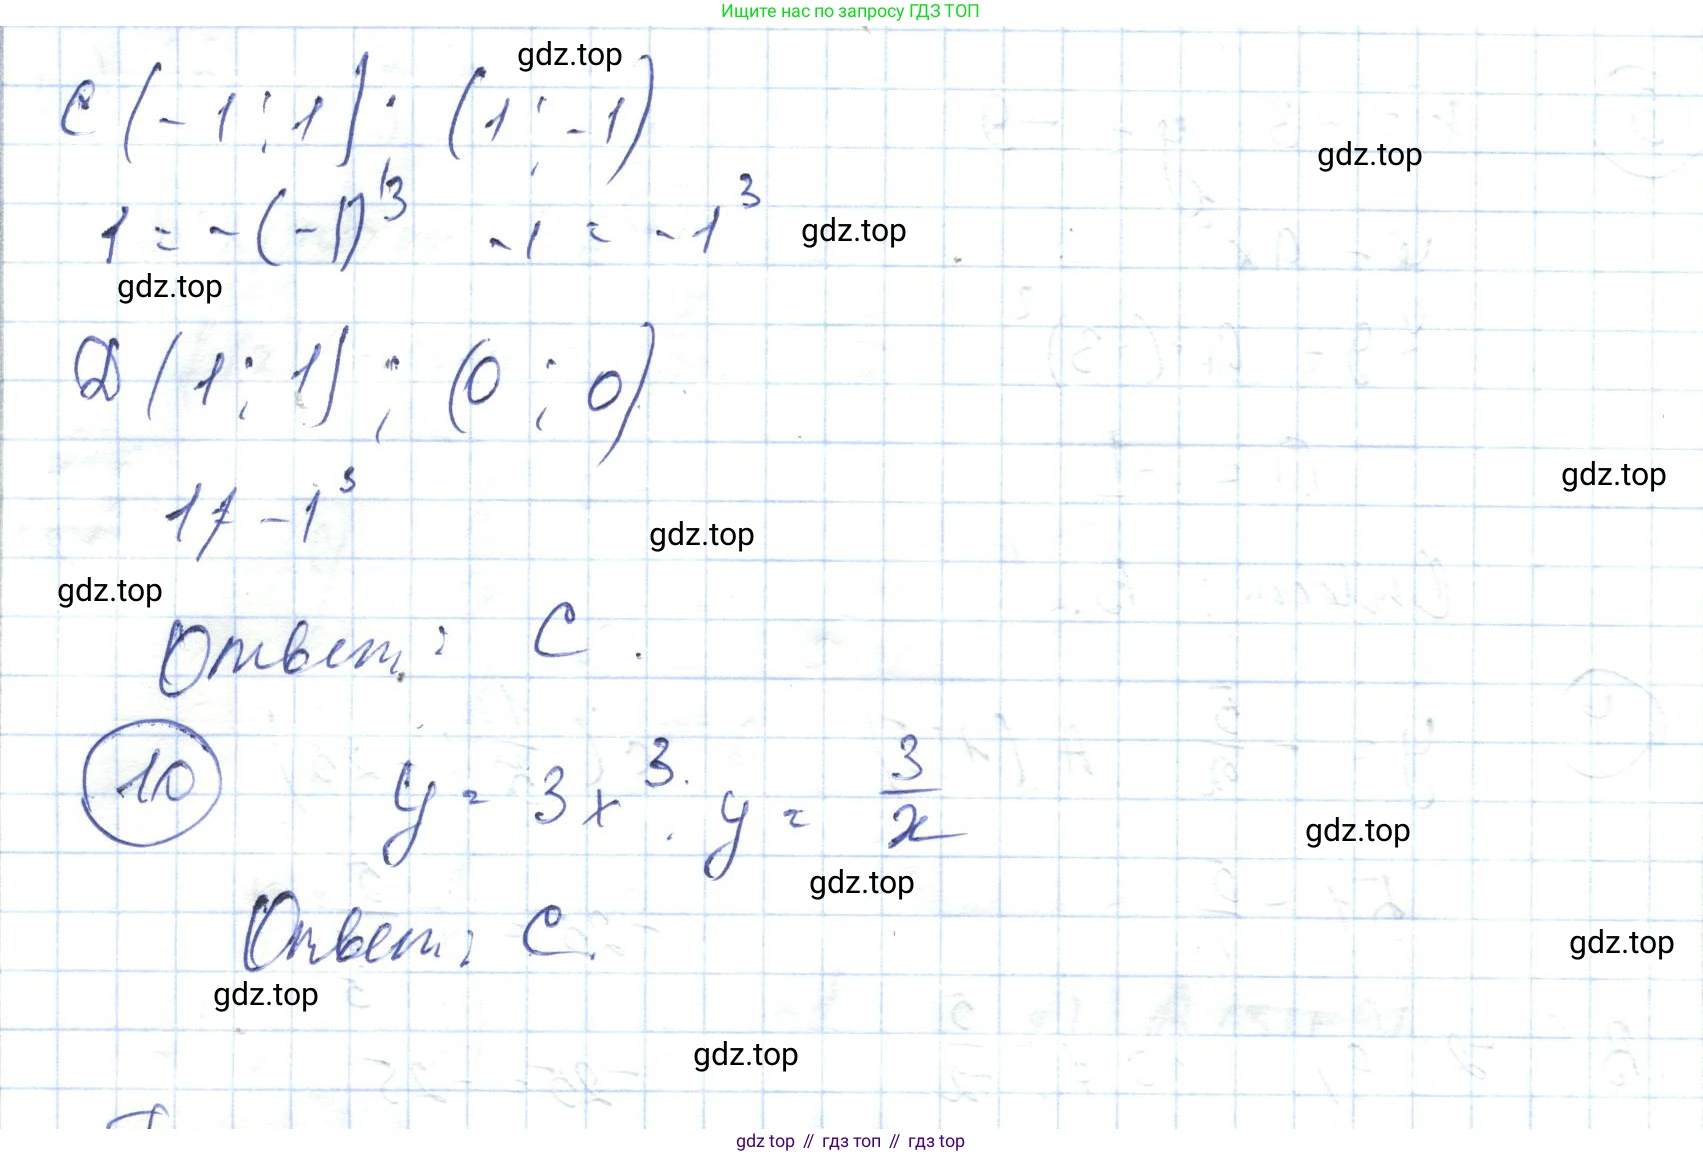 Ищите нас по запросу ГДЗ ТОП
gdz.top
C (-1; 1); (1; -1)
gdz.top
1 = -(-1)³ -1 = -1³
gdz.top
gdz.top
D (1; 1); (0; 0)
gdz.top
1 ≠ -1³
gdz.top
gdz.top
Ответ: C.
10 y = 3x³. y = 3/x
gdz.top
gdz.top
Ответ: C.
gdz.top
gdz.top
gdz.top
gdz top // гдз топ // гдз top